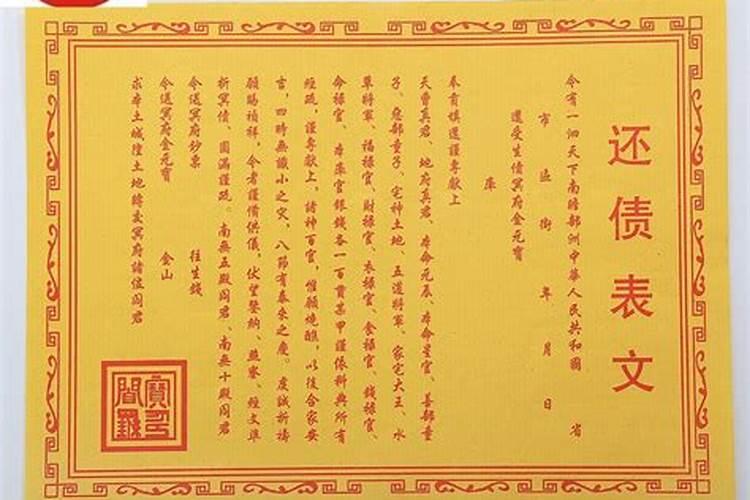 还债表文
今有一泗天下南瞻部洲中華人民共和國 省
市 區 街 年 月 日
還受生債冥府金元寶
庫
奉有填還謹專獻上
天曹真君、地府真君、本命元辰、本命星官、善部童
子、惡部童子、宅神土地、五道將軍、家宅大王、水
草將軍、福祿官、財祿官、衣祿官、食祿官、錢祿官、
命祿官、本庫官銀錢各一百貫某甲謹依科典所有
經疏，謹專獻上，諸神百官，惟願燒醮，以後合家安
言，四時無讖小之灾，八節有泰來之慶。虔誠祈禱
願賜禎祥，今者謹備供儀，伏望鑒納、熊寥、經文準
折冥債、圓滿謹疏。南無五殿阎君、南無十殿阎君
令送冥府鈔票 往生錢
令送冥府金元寶 金山
求本土城隍土地轉交冥府諸位阎君